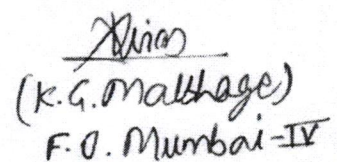 (K.G. Malkhage)
F.O. Mumbai-IV